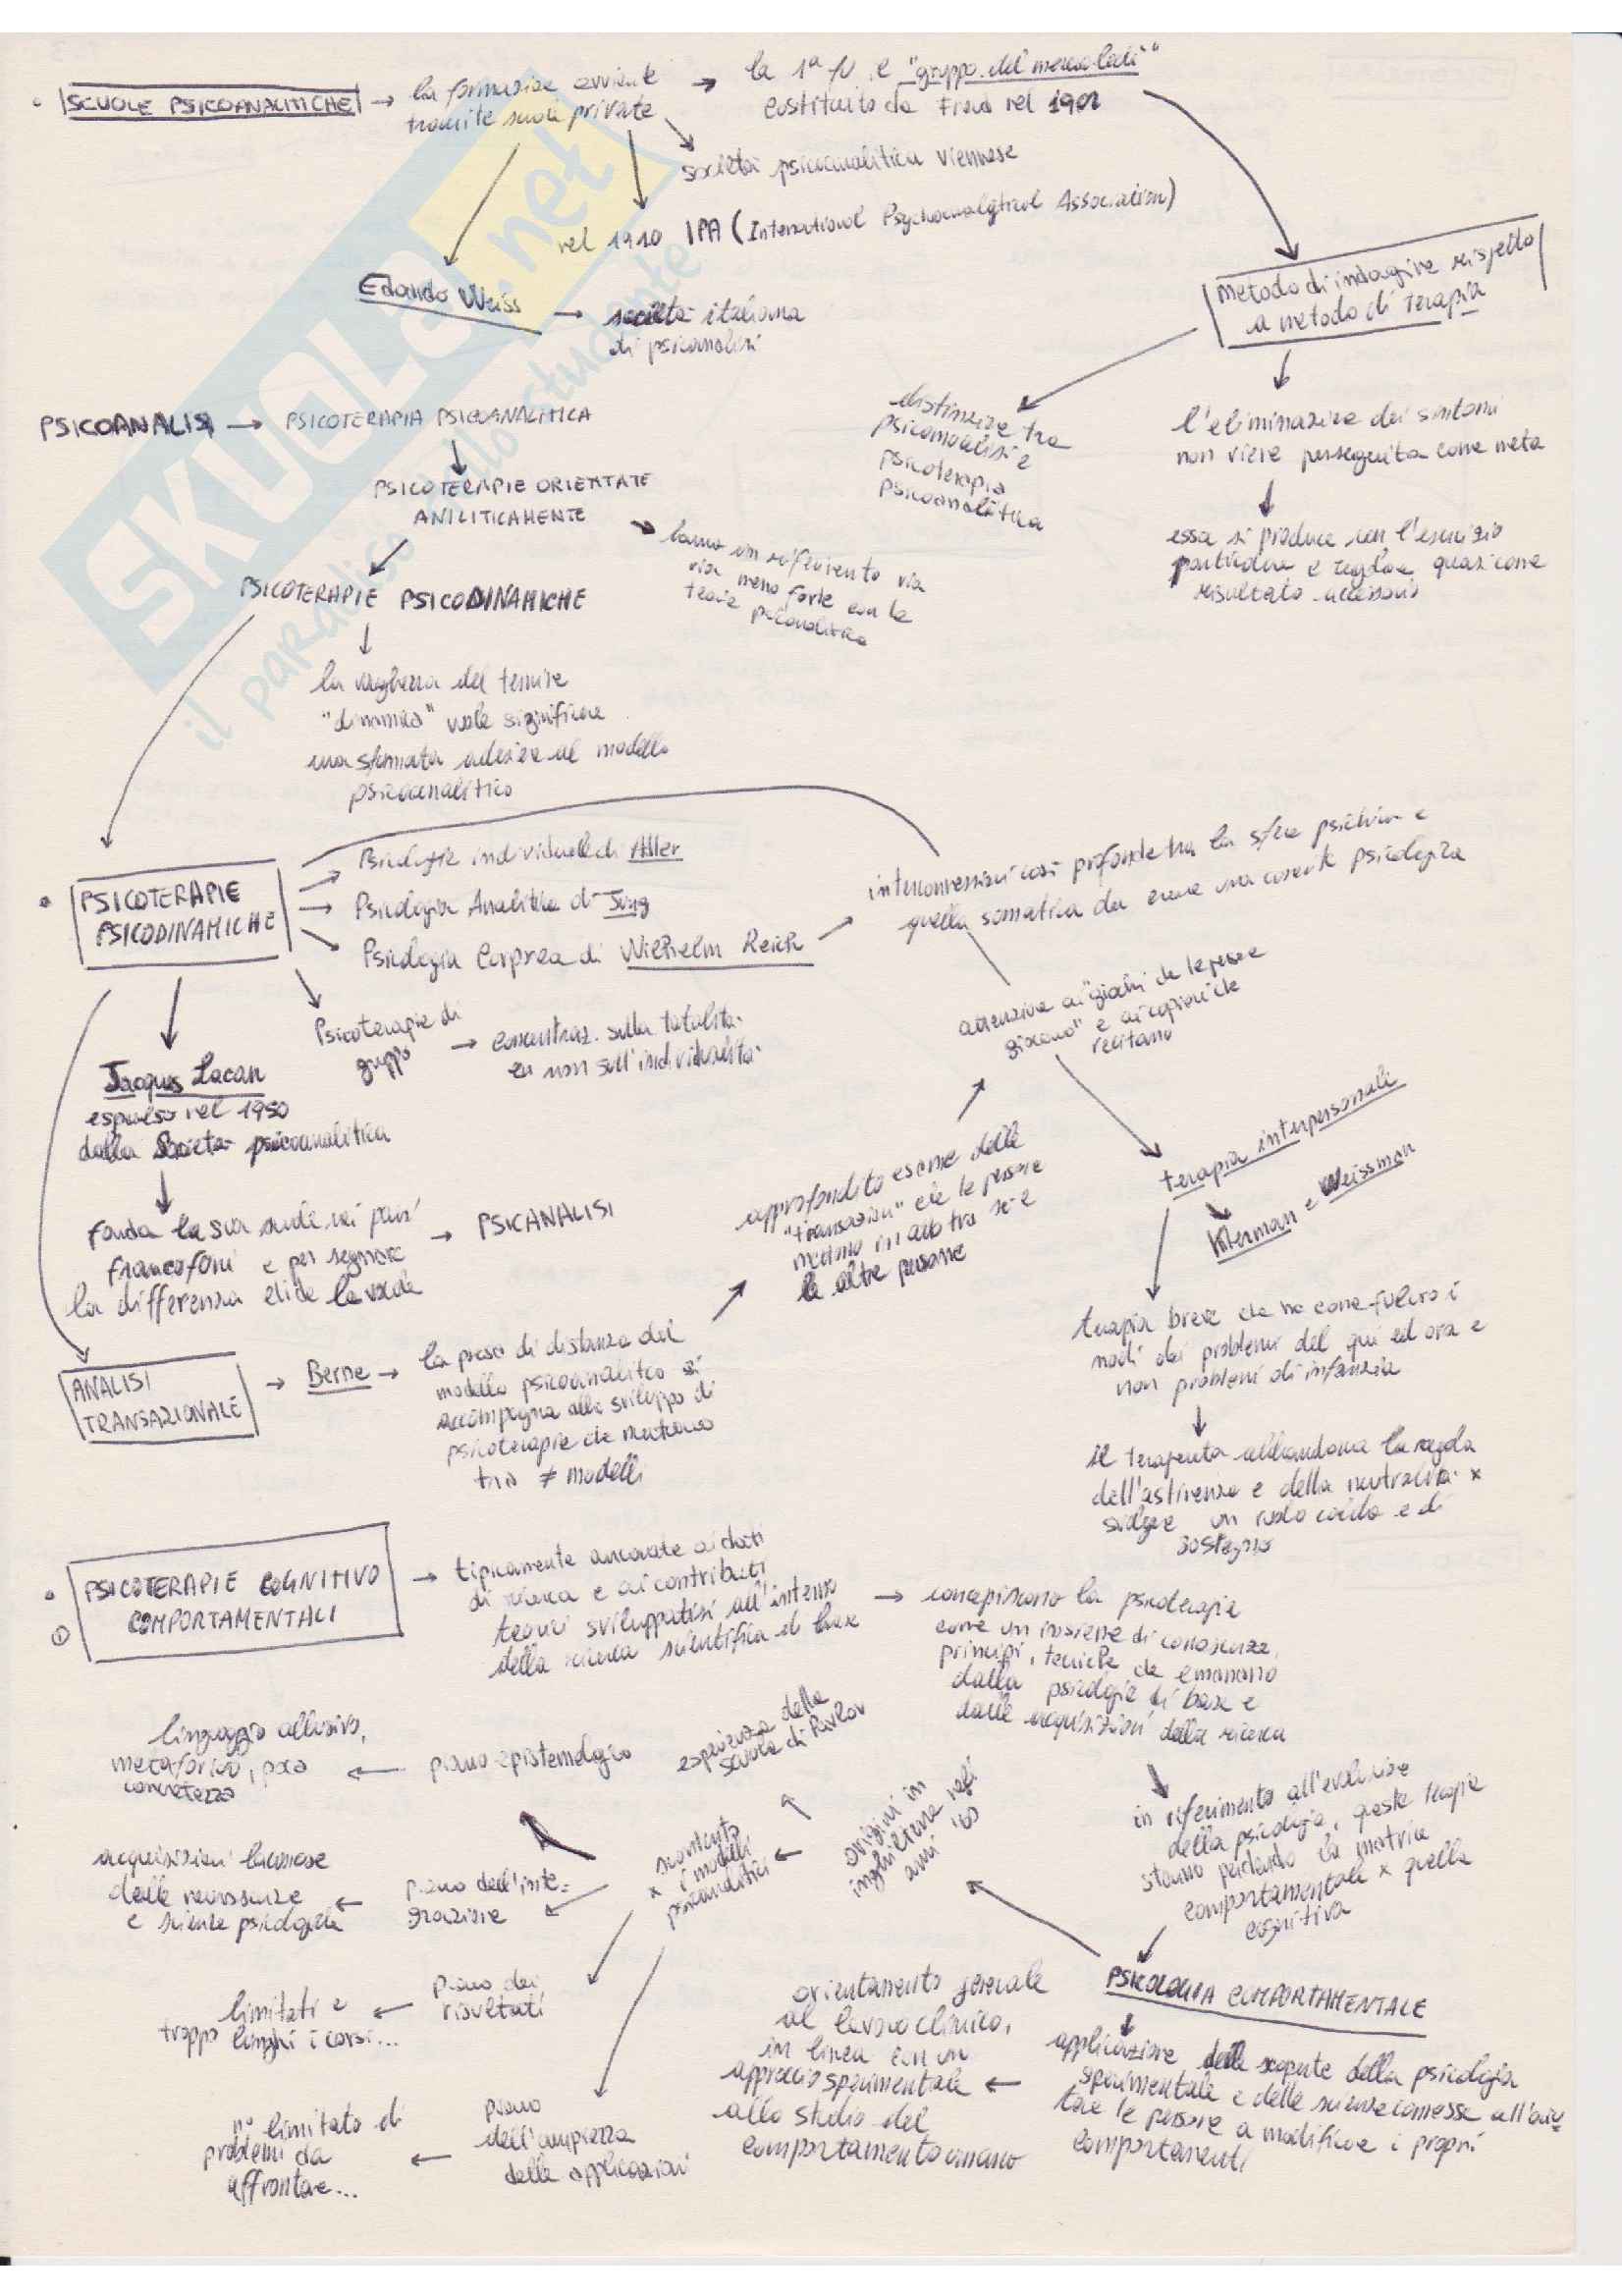 SCUOLE PSICOANALITICHE
la formazione avviene
tramite scuole private
la 1ª fu il "gruppo del mercoledì"
costituito da Freud nel 1902
società psicoanalitica viennese
nel 1910 IPA (International Psychoanalytical Association)
Edoardo Weiss
società italiana
di psicoanalisi
metodo di indagine rispetto
a metodo di terapia
distinzione tra
psicoanalisi e
psicoterapia
psicoanalitica
l'eliminazione dei sintomi
non viene perseguita come meta
essa si produce con l'esercizio
particolare e regolare quasi come
risultato accessorio
PSICOANALISI
PSICOTERAPIA PSICOANALITICA
PSICOTERAPIE ORIENTATE
ANILITICAMENTE
hanno un riferimento via
via meno forte con la
teoria psicoanalitica
PSICOTERAPIE PSICODINAMICHE
la vaghezza del termine
"dinamico" vuole significare
una sfumata adesione al modello
psicoanalitico
PSICOTERAPIE
PSICODINAMICHE
Psicologia individuale di Adler
Psicologia Analitica di Jung
Psicologia Corporea di Wilhelm Reich
interconnessioni così profonde tra la sfera psichica e
quella somatica da avere una corrente psicologica
Psicoterapie di
gruppo
concentraz. sulla totalità
e non sull'individualità
attenzione ai "giochi che le persone
giocano" e ai copioni che
recitano
Jacques Lacan
espulso nel 1950
dalla Società psicoanalitica
fonda la sua scuola nei paesi
francofoni e per segnare
la differenza elide la vocale
PSICANALISI
approfondito esame delle
"transazioni" che le persone
mettono in atto tra sé e
le altre persone
terapia interpersonale
Klerman e Weissman
terapia breve che ha come fulcro i
nodi dei problemi del qui ed ora e
non problemi di infanzia
il terapeuta abbandona la regola
dell'astinenza e della neutralità x
svolgere un ruolo caldo e di
sostegno
ANALISI
TRANSAZIONALE
Berne
la presa di distanza dal
modello psicoanalitico si
accompagna allo sviluppo di
psicoterapie che
≠ modelli
PSICOTERAPIE COGNITIVO
COMPORTAMENTALI
tipicamente ancorate ai dati
di ricerca e ai contributi
teorici sviluppatisi all'interno
della ricerca scientifica di base
concepiscono la psicoterapia
come un insieme di conoscenze,
principi, tecniche che emanano
dalla psicologia di base e
dalle acquisizioni della ricerca
in riferimento all'evoluzione
della psicologia, queste terapie
stanno perdendo la matrice
comportamentale x quella
cognitiva
PSICOLOGIA COMPORTAMENTALE
applicazione delle scoperte della psicologia
sperimentale e delle scienze connesse all'aiu-
tare le persone a modificare i propri
comportamenti
orientamento generale
al lavoro clinico,
in linea con un
approccio sperimentale
allo studio del
comportamento umano
origini in
inghilterra negli
anni '50
esperienza della
scuola di Pavlov
scontento
x i modelli
psicoanalitici
piano epistemologico
linguaggio allusivo,
metaforico, poca
concretezza
piano dell'inte-
grazione
acquisizioni lacunose
delle neuroscienze
e scienze psicologiche
piano dei
risultati
limitati e
troppo lunghi i corsi...
piano
dell'ampiezza
delle applicazioni
n° limitato di
problemi da
affrontare...
SKUOLA.net
il paradiso dello studente